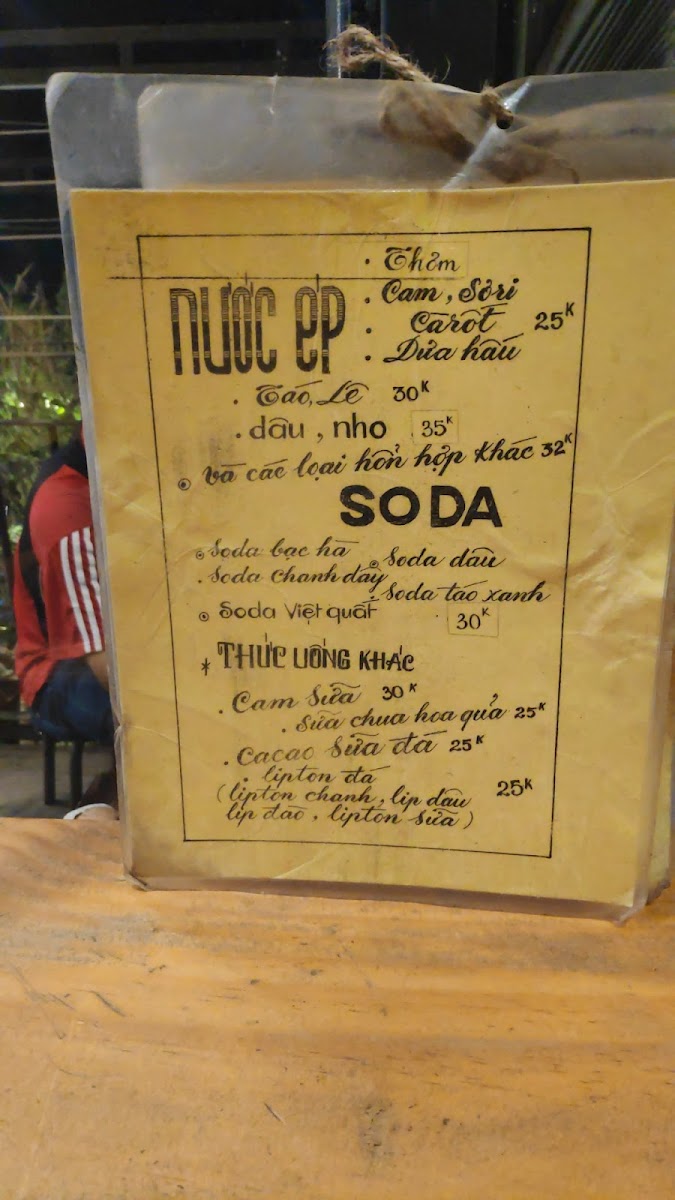 NƯỚC ÉP
. Thơm
. Cam, Sơri
. Carôt 25K
. Dưa hấu
. Táo, Lê 30K
. dâu, nho 35K
và các loại hổn hợp khác 32K
SODA
Soda bạc hà
Soda dâu
. Soda chanh dây
. Soda táo xanh
Soda Việt quất 30K
* THỨC UỐNG KHÁC
. Cam Sữa 30K
. Sữa chua hoa quả 25K
. Cacao Sữa đá 25K
. lipton đá
(lipton chanh, lip dâu 25K
lip đào, lipton sữa)